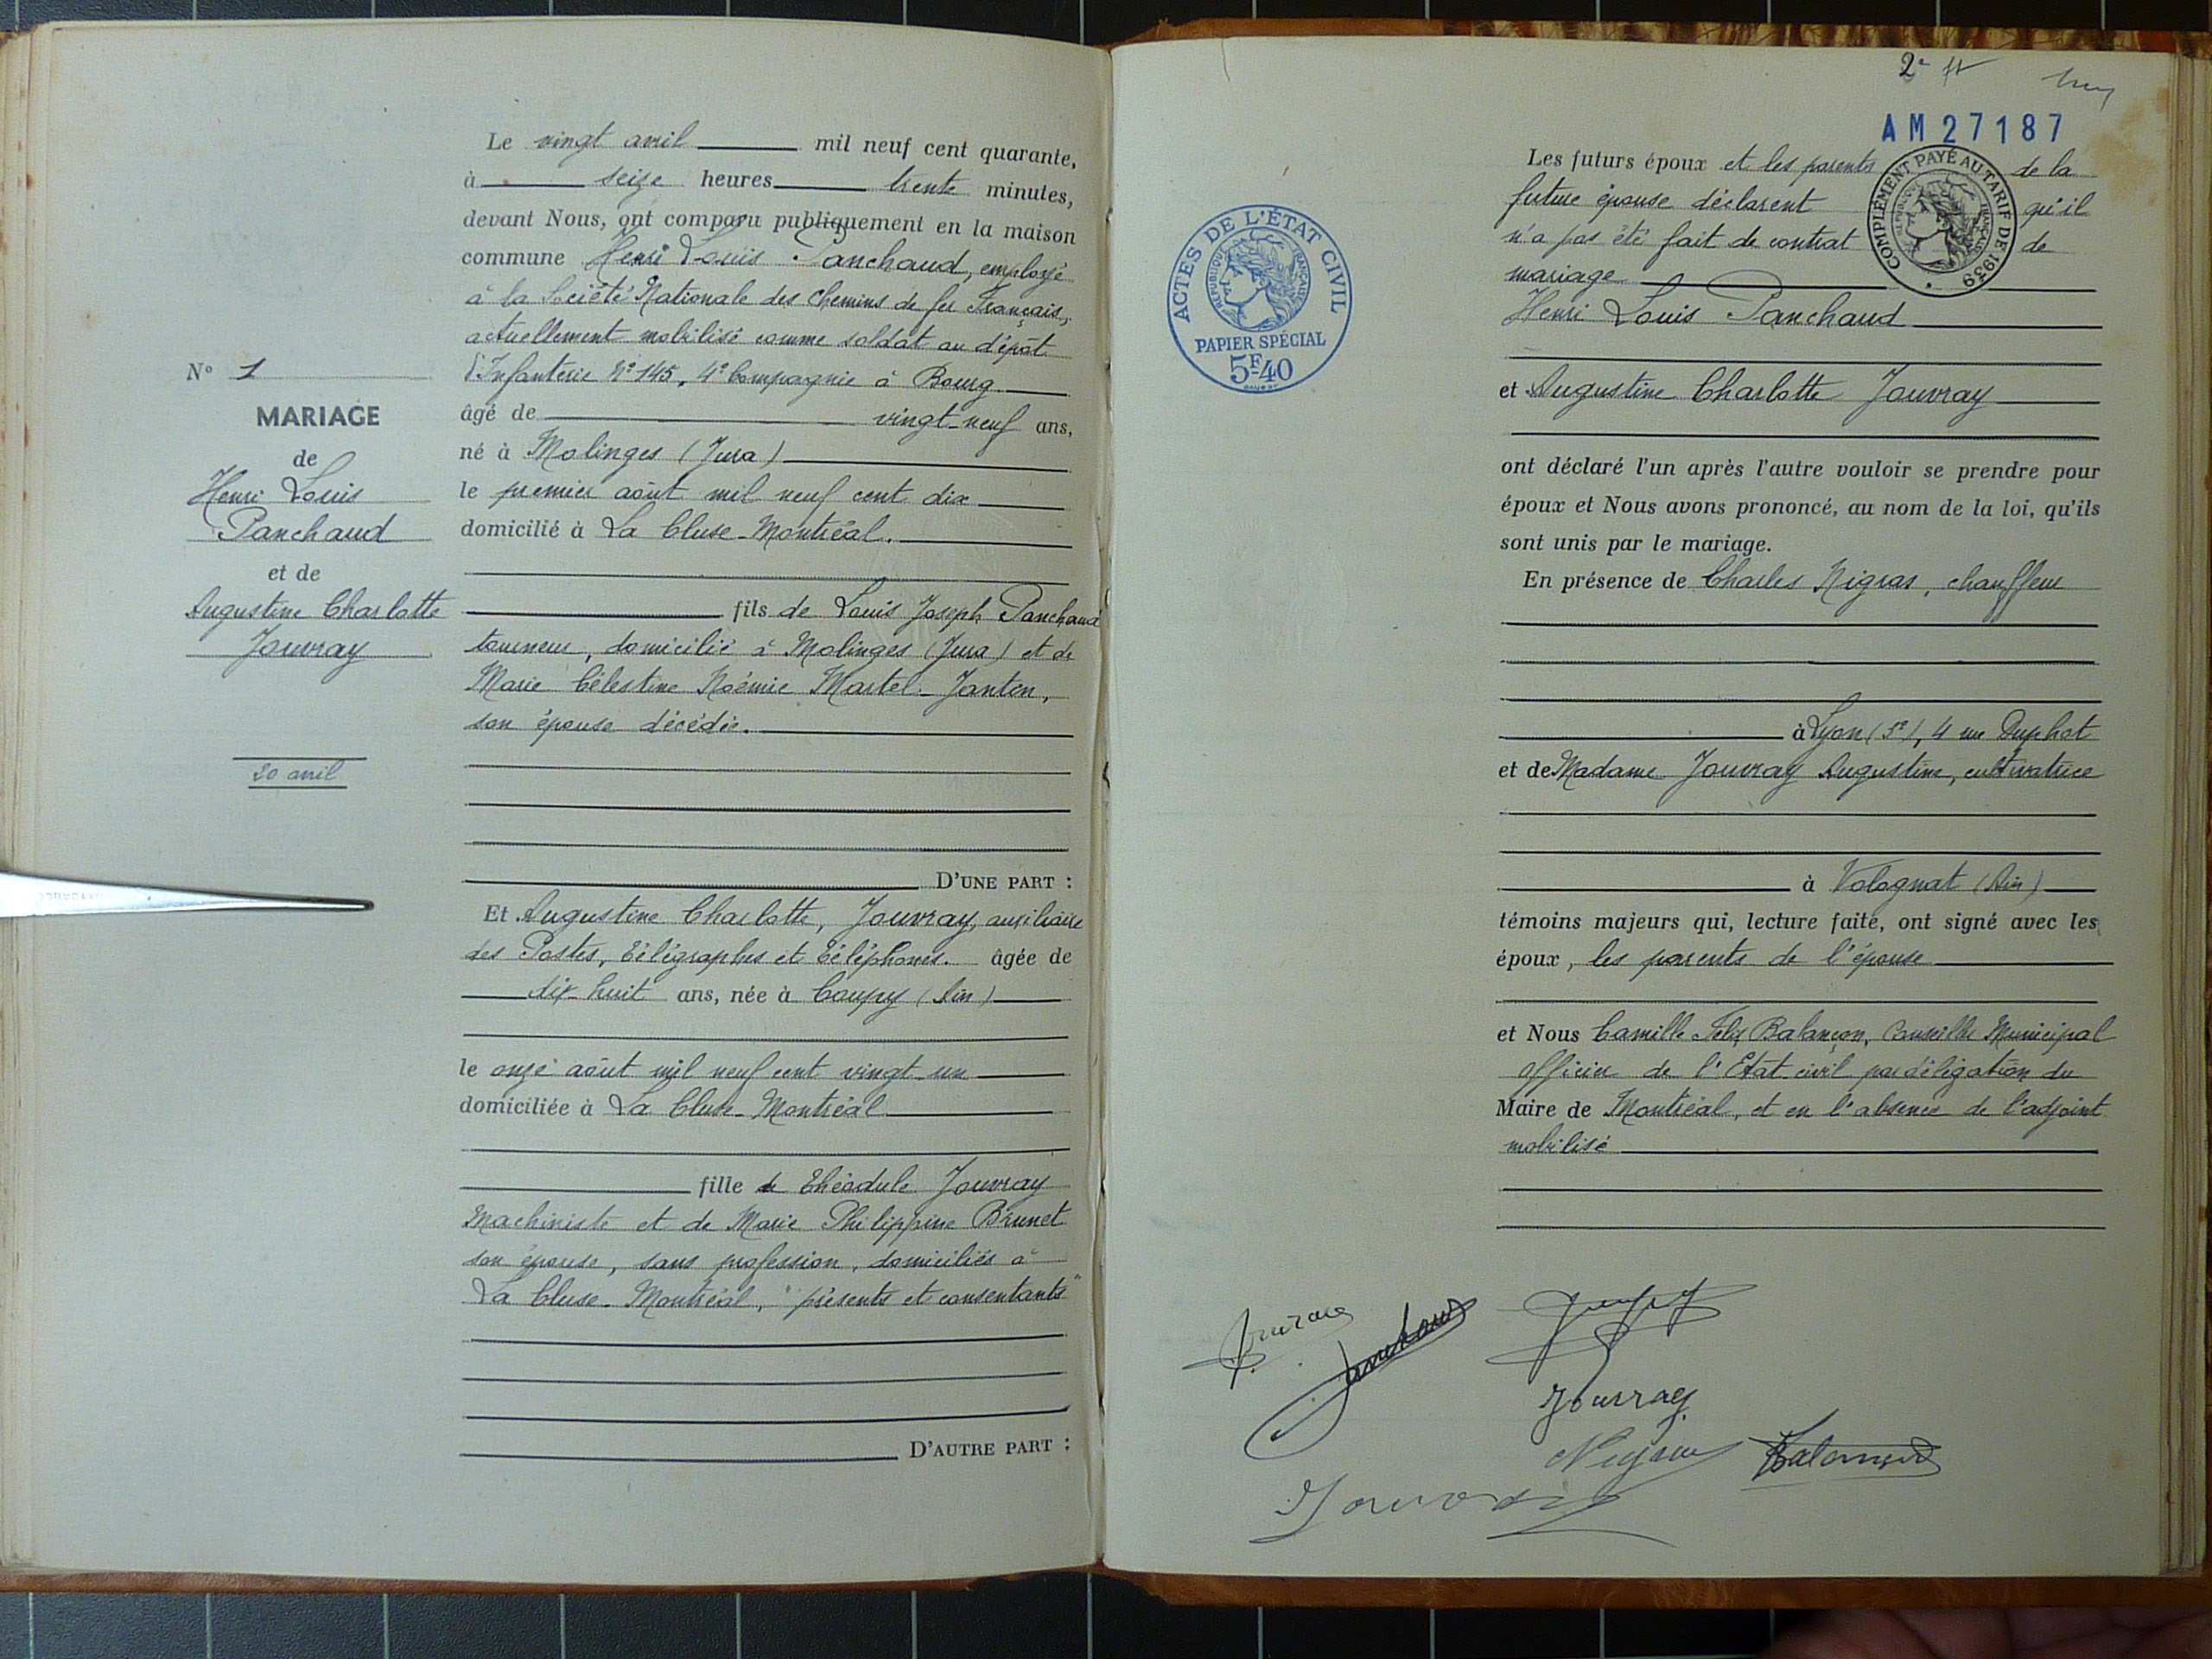 N° 1
MARIAGE
de
Henri Louis
Panchaud
et de
Augustine Charlotte
Jouvray
20 avril
Le vingt avril mil neuf cent quarante,
à seize heures trente minutes,
devant Nous, ont comparu publiquement en la maison
commune Henri Louis Panchaud, employé
à la Société Nationale des Chemins de fer Français,
actuellement mobilisé comme soldat au dépôt
d'Infanterie N° 145, 4e Compagnie à Bourg
âgé de vingt-neuf ans,
né à Molinges (Jura)
le premier août mil neuf cent dix
domicilié à La Cluse-Montréal.
fils de Louis Joseph Panchaud
tourneur, domicilié à Molinges (Jura) et de
Marie Célestine Noémie Martel-Janton,
son épouse décédée.
D'UNE PART :
Et Augustine Charlotte, Jouvray, auxiliaire
des Postes, Télégraphes et Téléphones. âgée de
dix-huit ans, née à Coupy (Ain)
le onze août mil neuf cent vingt-un
domiciliée à La Cluse-Montréal
fille de Théodule Jouvray
Machiniste et de Marie Philippine Brunet
son épouse, sans profession, domiciliés à
La Cluse-Montréal, "présents et consentants"
D'AUTRE PART :
2e
AM27187
ACTES DE L'ÉTAT CIVIL
RÉPUBLIQUE FRANÇAISE
PAPIER SPÉCIAL
5F40
COMPLÉMENT PAYÉ AU TARIF DE 1939
RÉPUBLIQUE FRANÇAISE
Les futurs époux et les parents de la
future épouse déclarent qu'il
n'a pas été fait de contrat de
mariage
Henri Louis Panchaud
et Augustine Charlotte Jouvray
ont déclaré l'un après l'autre vouloir se prendre pour
époux et Nous avons prononcé, au nom de la loi, qu'ils
sont unis par le mariage.
En présence de Charles Nigras, chauffeur
à Lyon (3e), 4 rue Duphot
et de Madame Jouvray Augustine, cultivatrice
à Volognat (Ain)
témoins majeurs qui, lecture faite, ont signé avec les
époux, les parents de l'épouse
et Nous Camille Félix Balançon, Conseiller Municipal
officier de l'Etat-civil par délégation du
Maire de Montréal, et en l'absence de l'adjoint
mobilisé
Jouvray
Panchaud
Jouvray
Jouvray
Balançon